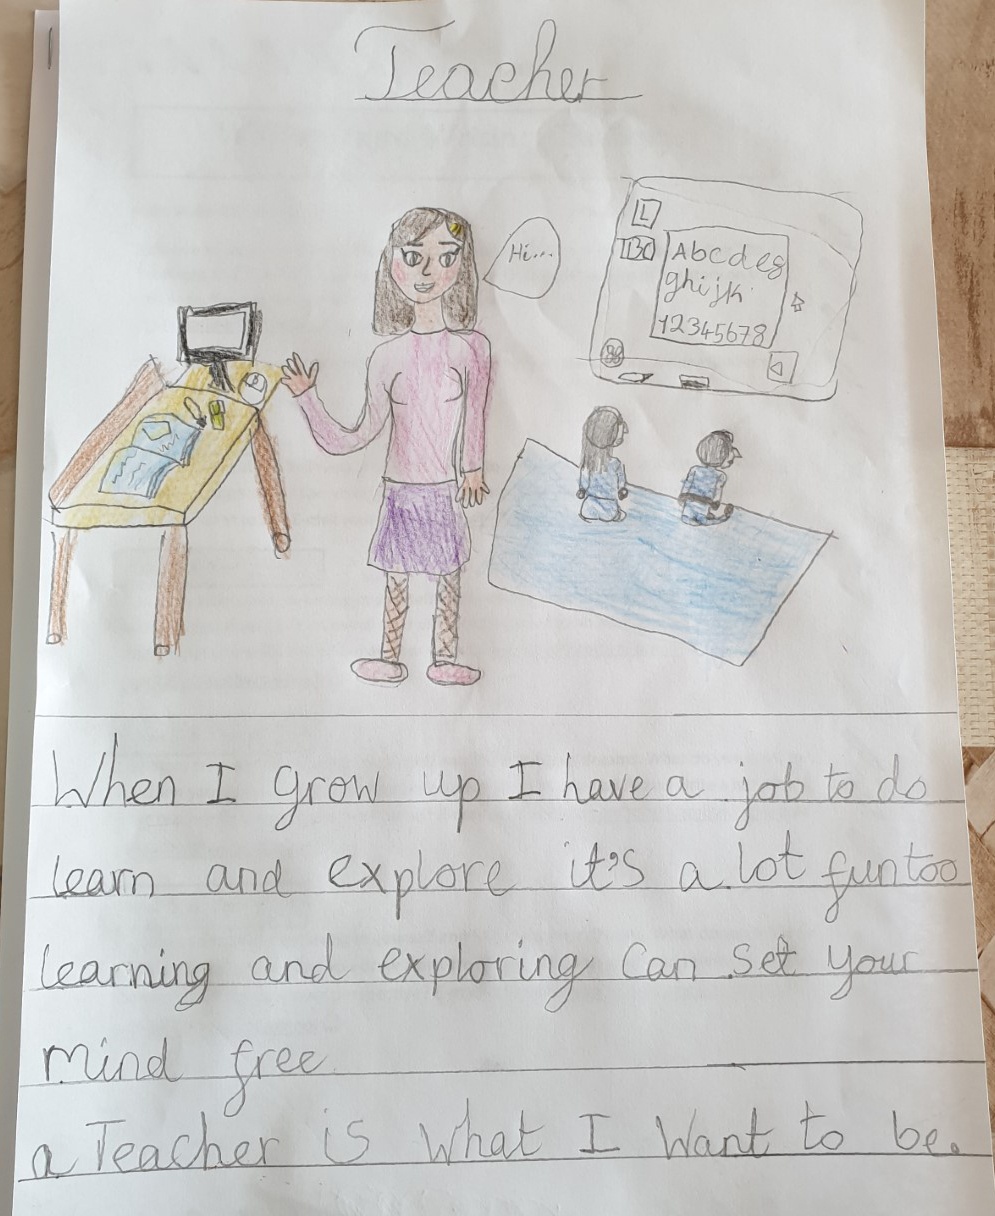 Teacher
Hi...
L
Abcdefg
ghijk
12345678
When I grow up I have a job to do
learn and explore it's a lot fun too
learning and exploring Can set your
mind free
a Teacher is what I want to be.